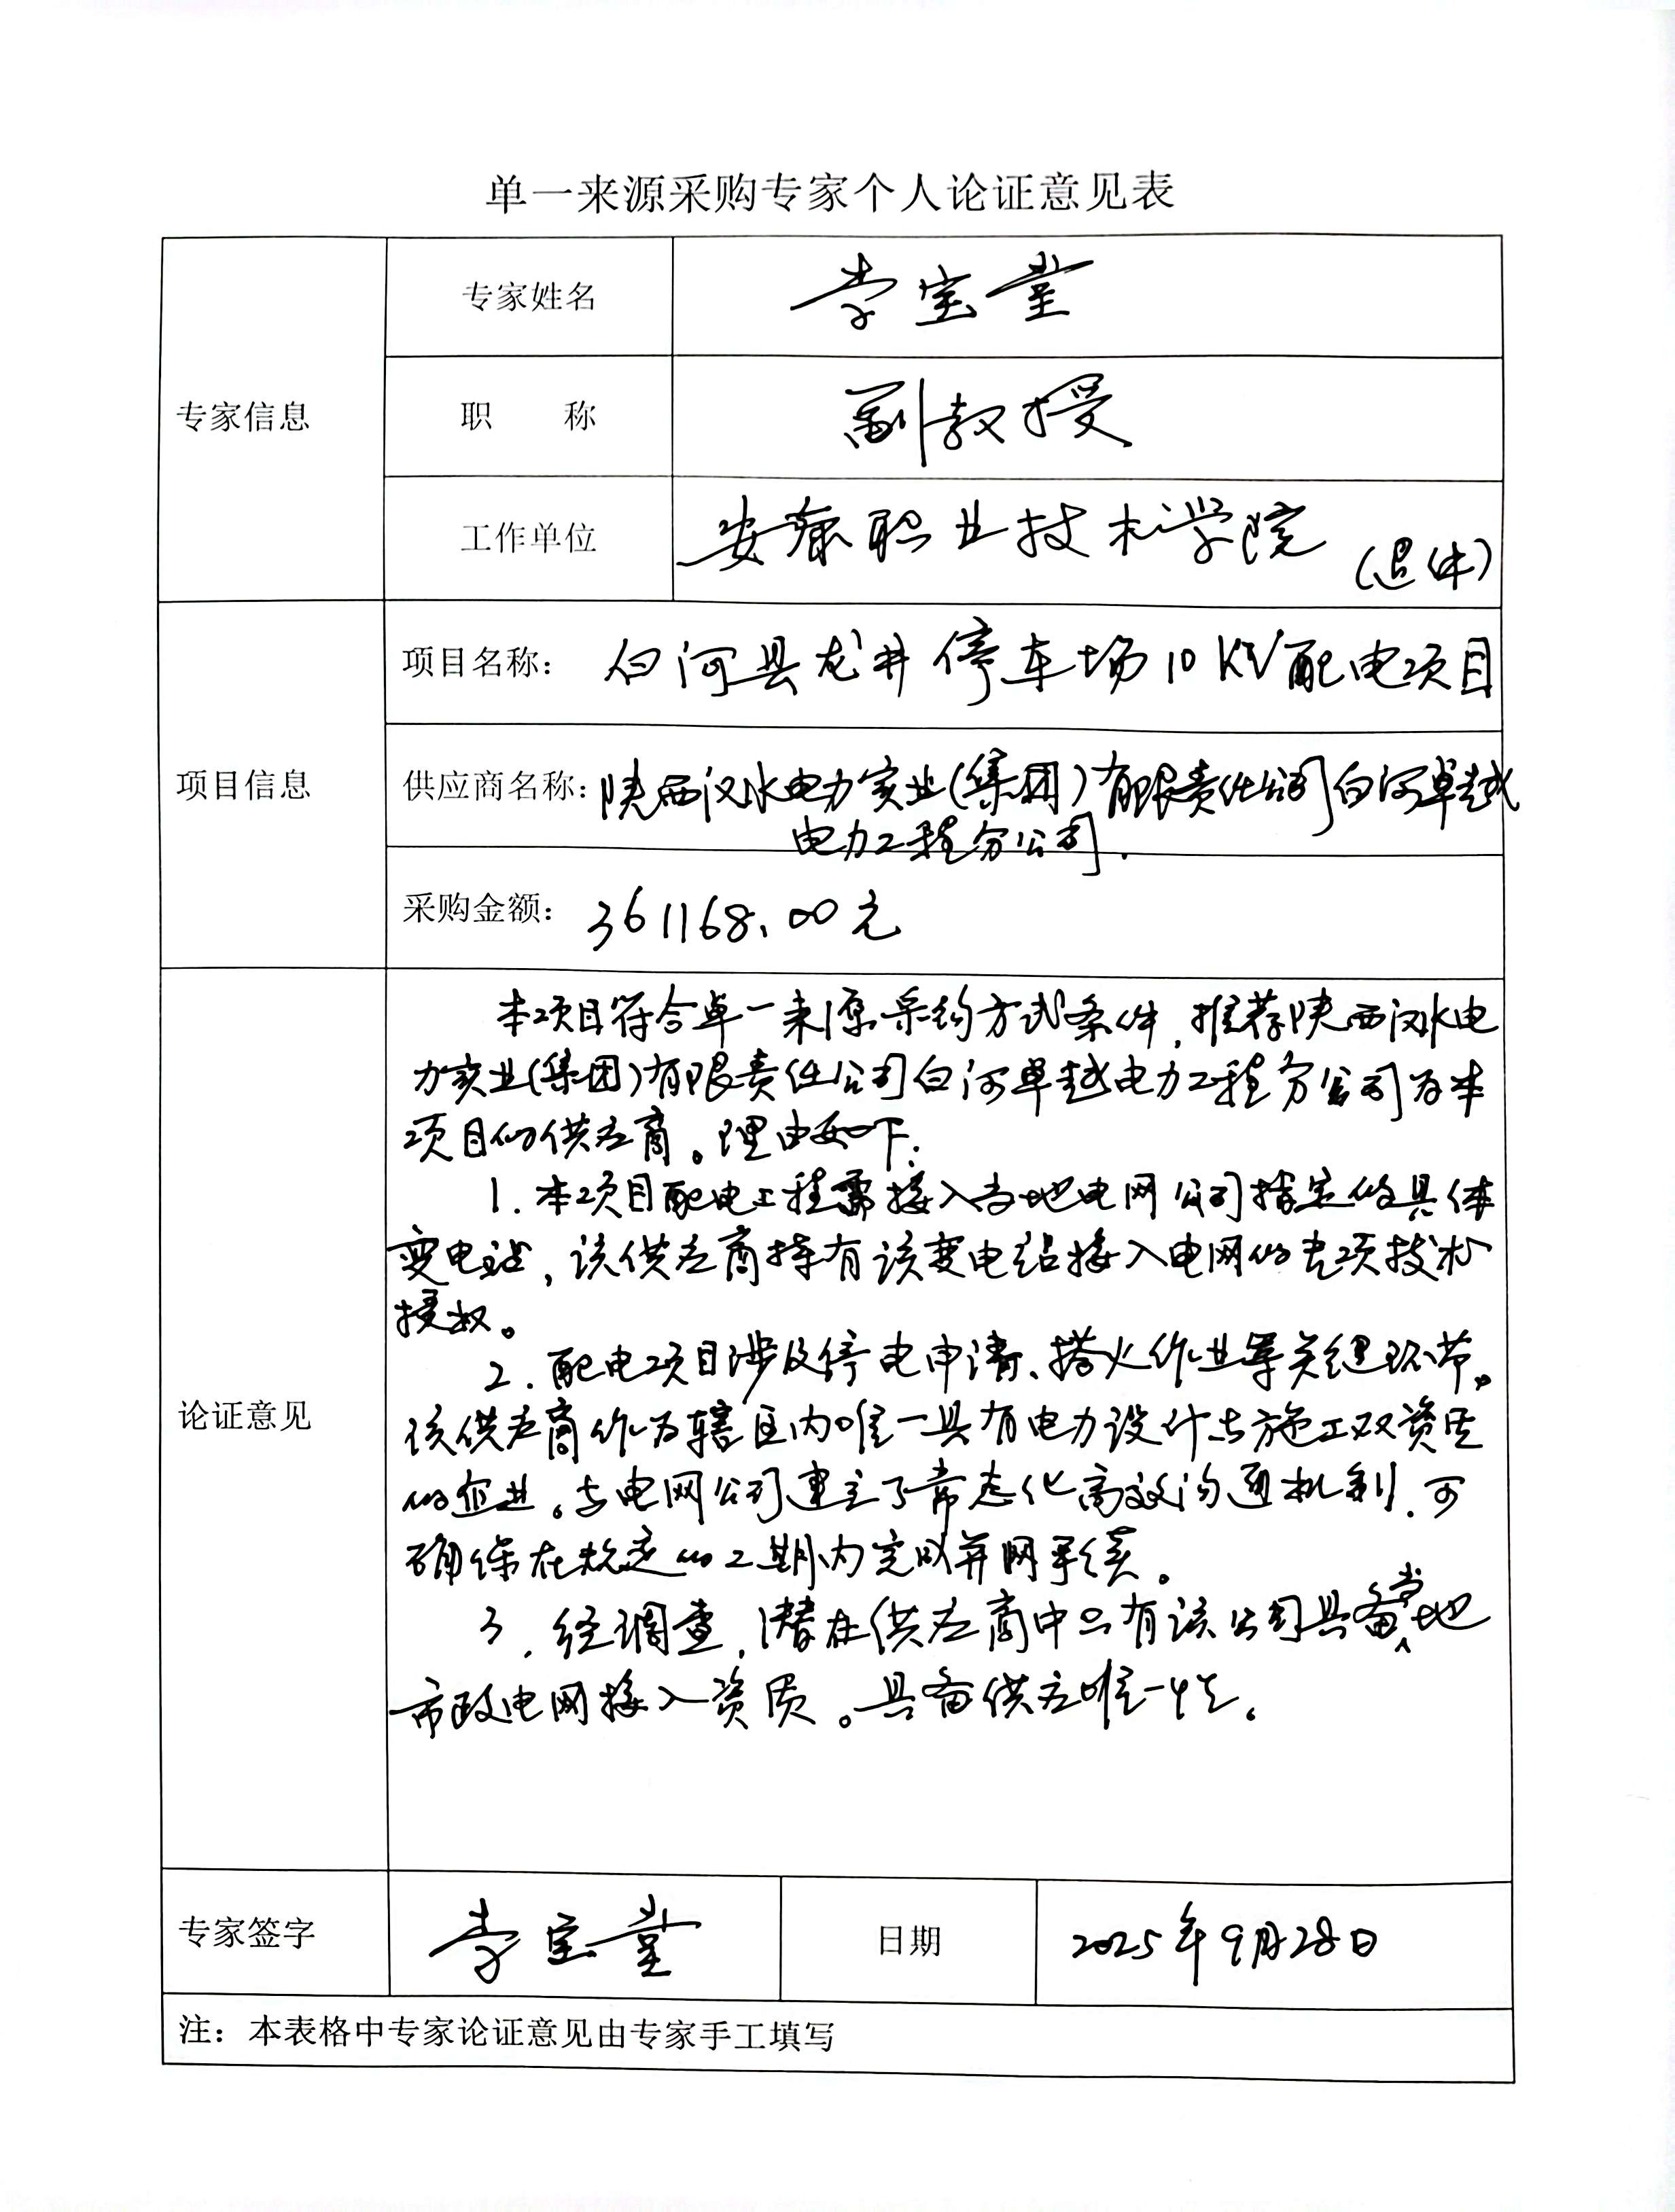 单一来源采购专家个人论证意见表
专家信息
专家姓名
李宝堂
职 称
副教授
工作单位
安康职业技术学院
(退休)
项目信息
项目名称: 白河县龙井停车场10KV配电项目
供应商名称: 陕西汉水电力实业(集团)有限责任公司白河卓越
电力工程分公司.
采购金额: 361168.00元
论证意见
本项目符合单一来源采购方式条件,推荐陕西汉水电
力实业(集团)有限责任公司白河卓越电力工程分公司为本
项目的供应商。理由如下:
1.本项目配电工程需接入当地电网公司指定的具体
变电站,该供应商持有该变电站接入电网的专项技术
授权。
2.配电项目涉及停电申请、搭火作业等关键环节。
该供应商作为辖区内唯一具有电力设计与施工双资质
的企业。与电网公司建立了常态化高效沟通机制.可
确保在规定的工期内完成并网手续。
3.经调查,潜在供应商中只有该公司具备当地
市政电网接入资质。具备供应唯一性。
专家签字
李宝堂
日期
2025年9月28日
注:本表格中专家论证意见由专家手工填写